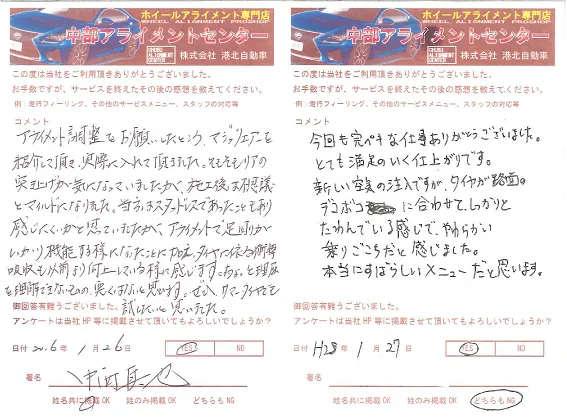 ホイールアライメント専門店
WHEEL ALIGNMENT PROSHOP
中部アライメントセンター
CHUBU ALIGNMENT CENTER
株式会社 港北自動車
この度は当社をご利用頂きありがとうございました。
お手数ですが、サービスを終えたその後の感想を教えてください。
例：走行フィーリング、その他のサービスメニュー、スタッフの対応等
コメント
アライメント調整をお願いしたところ、マジックエアーを
紹介して頂き、実際に入れて頂きました。そもそもリアの
突き上げが気になっていましたが、施工後は不思議
とマイルドになりました。当方はスタッドレスであったこともあり
感じにくいかと思っていたが、アライメントで足回りが
しっかり機能する様になったことに加え、タイヤに依る衝撃
吸収も以前より向上している様に感じます。ちょっと理屈
を理解できないものの、実くすばらしいと思います。ぜひ、サマータイヤでも
試したいと思いました。
御回答有難うございました。
アンケートは当社HP等に掲載させて頂いてもよろしいでしょうか？
日付 2016年 1月26日 YES NO
署名
姓名共に掲載OK 姓のみ掲載OK どちらもNG
ホイールアライメント専門店
WHEEL ALIGNMENT PROSHOP
中部アライメントセンター
CHUBU ALIGNMENT CENTER
株式会社 港北自動車
この度は当社をご利用頂きありがとうございました。
お手数ですが、サービスを終えたその後の感想を教えてください。
例：走行フィーリング、その他のサービスメニュー、スタッフの対応等
コメント
今回も完ペキな仕事ありがとうございました。
とても満足のいく仕上がりです。
新しい窒素の注入ですが、タイヤが路面の
デコボコに合わせて、しっかりと
たわんでいる感じで、やわらかい
乗りごこちだと感じました。
本当にすばらしいメニューだと思います。
御回答有難うございました。
アンケートは当社HP等に掲載させて頂いてもよろしいでしょうか？
日付 H28年 1月27日 YES NO
署名
姓名共に掲載OK 姓のみ掲載OK どちらもNG